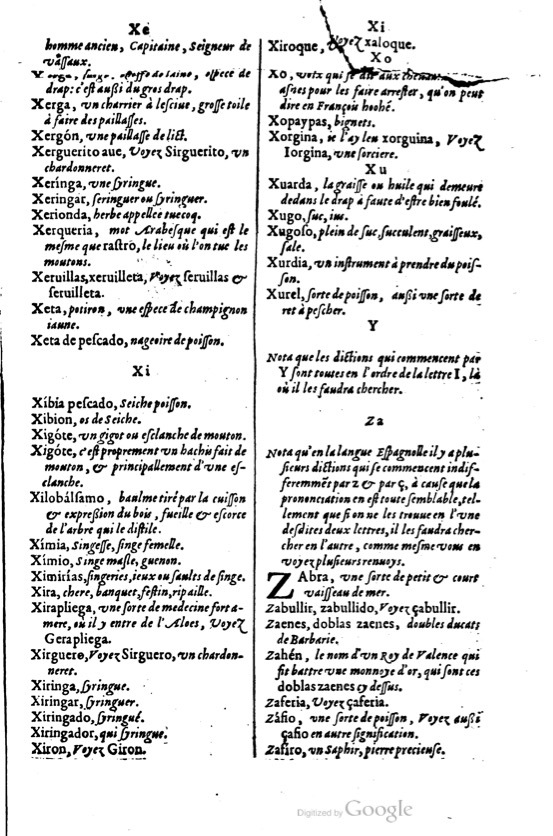 Xe
homme ancien, Capitaine, Seigneur de
vassaux.
drap: c'est aussi du gros drap.
Xerga, vn charrier à lesciue, grosse toile
à faire des paillasses.
Xergón, vne paillasse de lict.
Xerguerito aue, Voyez Sirguerito, vn
chardonneret.
Xerínga, vne syringue.
Xeringar, seringuer ou syringuer.
Xerionda, herbe appellee tuecoq.
Xerqueria, mot Arabesque qui est le
mesme que rastro, le lieu où l'on tue les
moutons.
Xeruillas, xeruilleta, Voyez seruillas &
seruilleta.
Xeta, potiron, vne espece de champignon
iaune.
Xeta de pescado, nageoire de poisson.
Xi
Xíbia pescado, Seiche poisson.
Xibion, os de Seiche.
Xigóte, vn gigot ou esclanche de mouton.
Xigóte, c'est proprement vn hachis fait de
mouton, & principallement d'vne es-
clanche.
Xilobálsamo, baulme tiré par la cuisson
& expression du bois, fueille & escorce
de l'arbre qui le distile.
Xímia, Singesse, singe femelle.
Xímio, Singe masle, guenon.
Ximirías, singeries, ieux ou saults de singe.
Xira, chere, banquet, festin, ripaille.
Xirapliega, vne sorte de medecine fort a-
mere, où il y entre de l'Aloes, Voyez
Gerapliega.
Xirguero, Voyez Sirguero, vn chardon-
neret.
Xiringa, syringue.
Xiringar, syringuer.
Xiringado, syringué.
Xiringador, qui syringue.
Xiron, Voyez Giron.
Xi
Xiroque, Voyez xaloque.
Xo
Xo, voix qui se dit aux
asnes pour les faire arrester, qu'on peut
dire en François hoohé.
Xopaypas, bignets.
Xorgina, ie l'ay leu xorguina, Voyez
Iorgina, vne sorciere.
Xu
Xuarda, la graisse ou huile qui demeure
dedans le drap à faute d'estre bien foulé.
Xugo, suc, ius.
Xugoso, plein de suc, succulent, graisseux,
sale.
Xurdia, vn instrument à prendre du pois-
son.
Xurel, sorte de poisson, aussi vne sorte de
ret à pescher.
Y
Nota que les dictions qui commencent par
Y sont toutes en l'ordre de la lettre I, là
où il les faudra chercher.
Za
Nota qu'en la langue Espagnolle il y a plu-
sieurs dictions qui se commencent indif-
feremmēt par z & par ç, à cause que la
prononciation en est toute semblable, tel-
lement que si on ne les trouue en l'vne
desdites deux lettres, il les faudra cher-
cher en l'autre, comme mesme vous en
voyez plusieurs renuoys.
ZAbra, vne sorte de petit & court
vaisseau de mer.
Zabullir, zabullido, Voyez çabullir.
Zaenes, doblas zaenes, doubles ducats
de Barbarie.
Zahén, le nom d'vn Roy de Valence qui
fit battre vne monnoye d'or, qui sont ces
doblas zaenes cy dessus.
Zaferia, Voyez çaferia.
Záfio, vne sorte de poisson, Voyez aussi
çafio en autre signification.
Zafiro, vn Saphir, pierre precieuse.
Digitized by Google